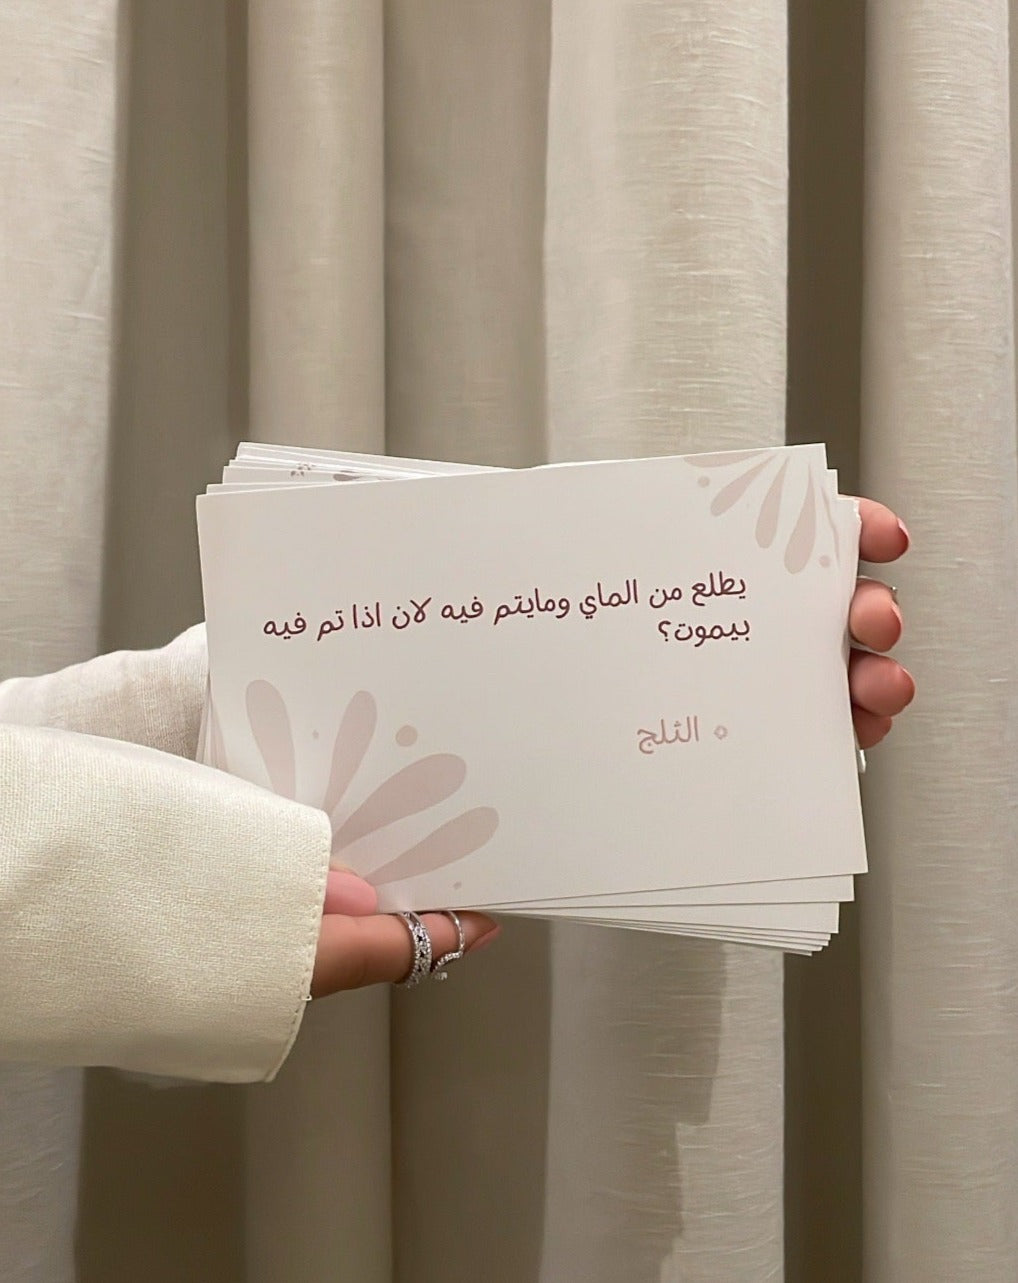 يطلع من الماي ومايتم فيه لان اذا تم فيه
بيموت؟
الثلج